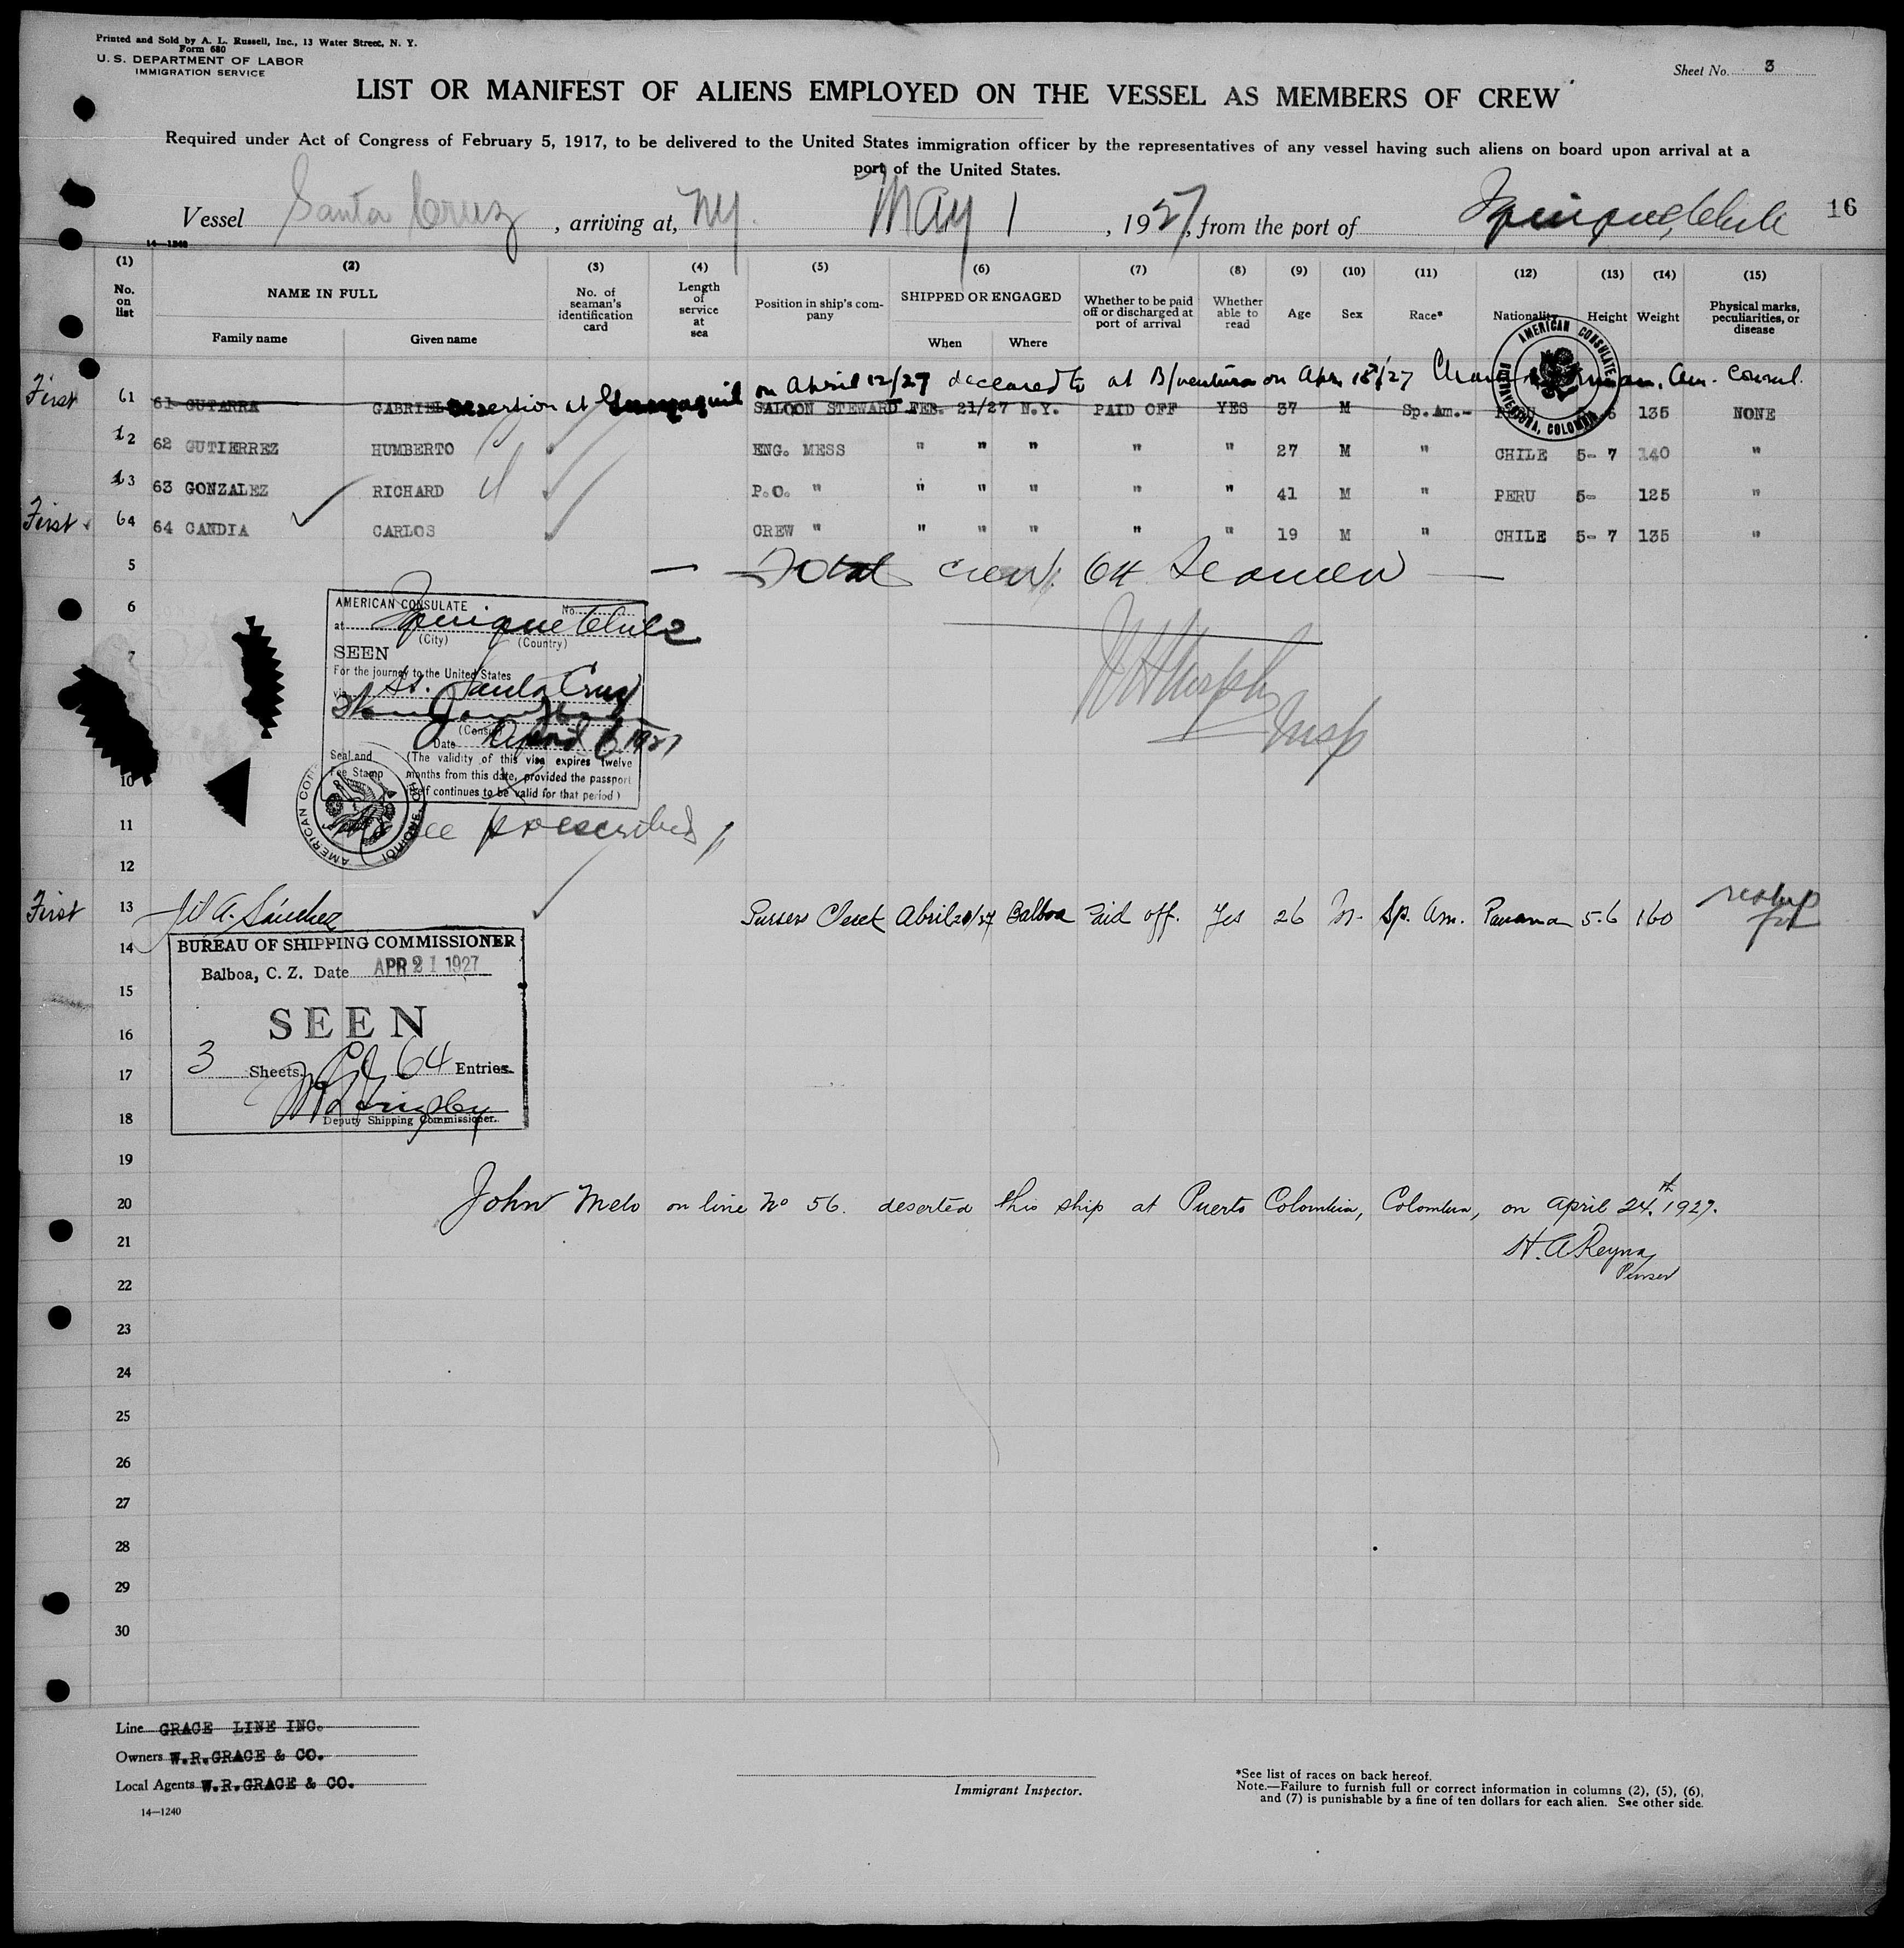 Printed and Sold by A. L. Russell, Inc., 13 Water Street, N. Y.
Form 680
U. S. DEPARTMENT OF LABOR
IMMIGRATION SERVICE
Sheet No. 3
LIST OR MANIFEST OF ALIENS EMPLOYED ON THE VESSEL AS MEMBERS OF CREW
Required under Act of Congress of February 5, 1917, to be delivered to the United States immigration officer by the representatives of any vessel having such aliens on board upon arrival at a
port of the United States.
Vessel Santa Cruz, arriving at, NY. May 1, 1927, from the port of Iquique, Chile 16
14-1240
(1) (2) (3) (4) (5) (6) (7) (8) (9) (10) (11) (12) (13) (14) (15)
No. on list
NAME IN FULL
Family name
Given name
No. of seaman's identification card
Length of service at sea
Position in ship's company
SHIPPED OR ENGAGED
When
Where
Whether to be paid off or discharged at port of arrival
Whether able to read
Age
Sex
Race*
Nationality
Height
Weight
Physical marks, peculiarities, or disease
AMERICAN CONSULATE
BUENAVENTURA, COLOMBIA
Desertion at Guayaquil on April 12/27 declared to at B/ventura on Apr. 18/27 Am. Consul.
First 61 61 GUTARRA GABRIEL SALOON STEWARD FEB. 21/27 N.Y. PAID OFF YES 37 M Sp.Am.- PERU 5-6 135 NONE
62 62 GUTIERREZ HUMBERTO ENG. MESS " " " " " 27 M " CHILE 5-7 140 "
63 63 GONZALEZ RICHARD P.O. " " " " " " 41 M " PERU 5- 125 "
First 64 64 CANDIA CARLOS CREW " " " " " " 19 M " CHILE 5-7 135 "
5 — Total crew: 64 Seamen —
6
7
AMERICAN CONSULATE No.
at Iquique Chile
(City) (Country)
SEEN
For the journey to the United States
via St. Santa Cruz
(Consul)
Date April 6 1927
Seal and
Fee Stamp
(The validity of this visa expires twelve
months from this date, provided the passport
itself continues to be valid for that period)
AMERICAN CONSULATE IQUIQUE, CHILE
fee prescribed
W H Murphy
Insp
10
11
12
First 13 Gil A. Sánchez Pursers Clerk Abril 20/27 Balboa Paid off. Yes 26 M. Sp. Am. Panama 5-6 160
14
BUREAU OF SHIPPING COMMISSIONER
Balboa, C. Z. Date APR 21 1927
SEEN
3 Sheets. 64 Entries.
Deputy Shipping Commissioner.
15
16
17
18
19
20 John Melo on line No 56. deserted this ship at Puerto Colombia, Colombia, on April 24th, 1927.
21 H. A Reyna
22 Purser
23
24
25
26
27
28
29
30
Line GRACE LINE INC.
Owners W.R.GRACE & CO.
Local Agents W.R.GRACE & CO.
14—1240
Immigrant Inspector.
*See list of races on back hereof.
Note.—Failure to furnish full or correct information in columns (2), (5), (6),
and (7) is punishable by a fine of ten dollars for each alien. See other side.